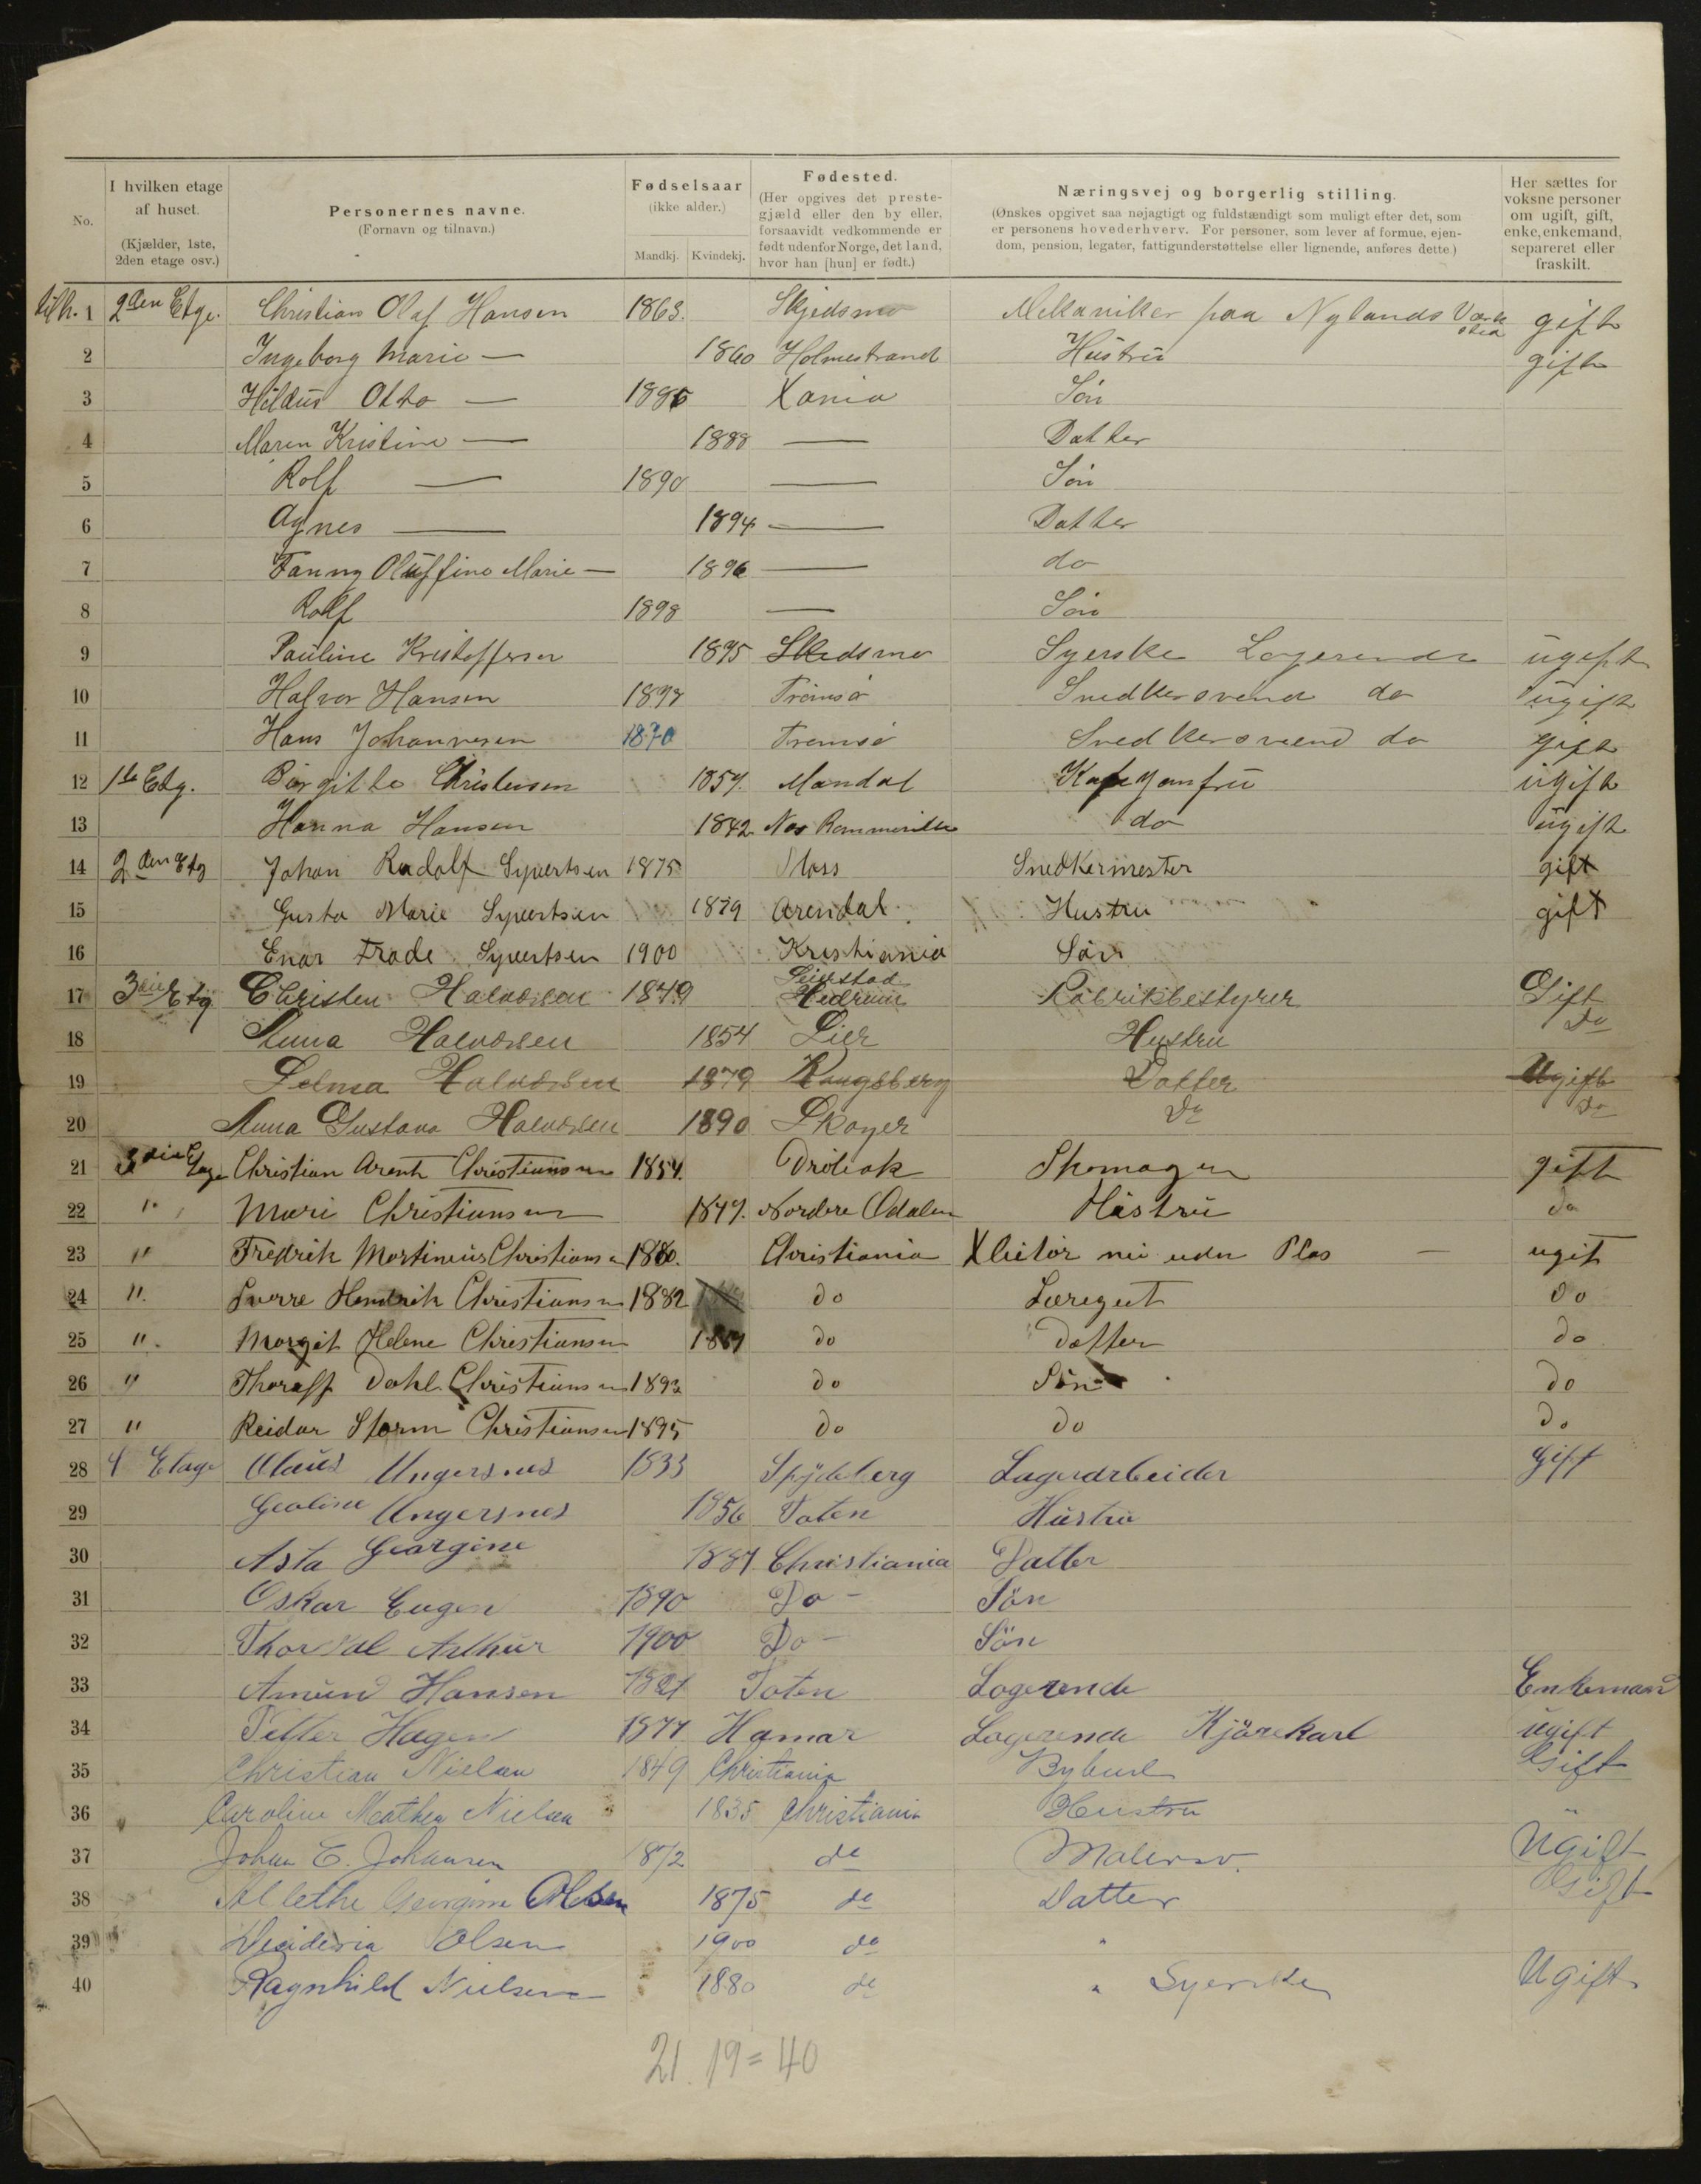 No.
I hvilken etage af huset. (Kjælder, 1ste, 2den etage osv.)
Personernes navne. (Fornavn og tilnavn.)
Fødselsaar (ikke alder.) Mandkj. Kvindekj.
Fødested. (Her opgives det prestegjæld eller den by eller, forsaavidt vedkommende er født udenfor Norge, det land, hvor han [hun] er født.)
Næringsvej og borgerlig stilling. (Ønskes opgivet saa nøjagtigt og fuldstændigt som muligt efter det, som er personens hovederhverv. For personer, som lever af formue, ejendom, pension, legater, fattigunderstøttelse eller lignende, anføres dette.)
Her sættes for voksne personer om ugift, gift, enke, enkemand, separeret eller fraskilt.
1 2den Etge. Christian Olaf Hansen 1863. Skjedsmo Mekaniker paa Nylands Værksted gift
2 Ingeborg Marie — 1860 Holmestrand Hustru gift
3 Hildus Otto — 1886 Xania Søn
4 Maren Kristine — 1888 — Datter
5 Rolf — 1890 — Søn
6 Agnes — 1894 — Datter
7 Fanny Oluffine Marie — 1896 — do
8 Rolf 1898 — Søn
9 Pauline Kristoffersen 1895 Skedsmo Syerske Logerende ugift
10 Halvor Hansen 1898 Tromsø Snedkersvend do ugift
11 Hans Johannesen 1870 Tromsø Snedkersvend do gift
12 1te Etg. Birgitte Christensen 1857. Mandal ugift
13 Hanna Hansen 1842 Nes Rommerike do ugift
14 2den Etg Johan Rudolf Syvertsen 1875 Moss Snedkermester gift
15 Gusta Marie Syvertsen 1879 Arendal. Hustru gift
16 Enar Frode Syvertsen 1900 Kristiania Søn
17 3die Etg Christen Halvorsen 1849 Hedrum Fabrikbestyrer Gift
18 Anna Halvorsen 1854 Lier Hustru Do
19 Selma Halvorsen 1879 Kongsberg Datter Ugift
20 Anna Gustava Halvorsen 1890 Skoger Do Do
21 3die Etage Christian Arent Christiansen 1854. Drøbak Skomager gift
22 " Mari Christiansen 1847. Nordre Odalen Hustru do
23 " Fredrik Martinius Christiansen 1880. Christiania udn Plas — ugit
24 ". Sverre Hendrik Christiansen 1882 do Læregut do
25 ". Margit Helene Christiansen 1887 do datter do
26 " Thoralf Dahl Christiansen 1892 do Søn do
27 " Reidar Storm Christiansen 1895 do do do
28 4 Etage Olaus Ungersnes 1833 Spydeberg Lagerarbeider Gift
29 Geoline Ungersnes 1856 Toten Hustru
30 Asta Georgine 1887 Christiania Datter
31 Oskar Eugen 1890 Do - Sön
32 Thorval Arthur 1900 Do - Sön
33 Amund Hansen 1821 Toten Logerende Enkemand
34 Petter Hagen 1877 Hamar Logerende Kjörekarl ugift
35 Christian Nielsen 1849 Christiania Bybud Gift
36 Caroline Mathea Nielsen 1835 Christiania Hustru "
37 Johan E. Johansen 1872 do Malersv. Ugift
38 Allethe Georgine Olsen 1875 do Datter Gift
39 Desideria Olsen 1900 do "
40 Ragnhild Nielsen 1880 do " Syerske Ugift
21. 19 = 40